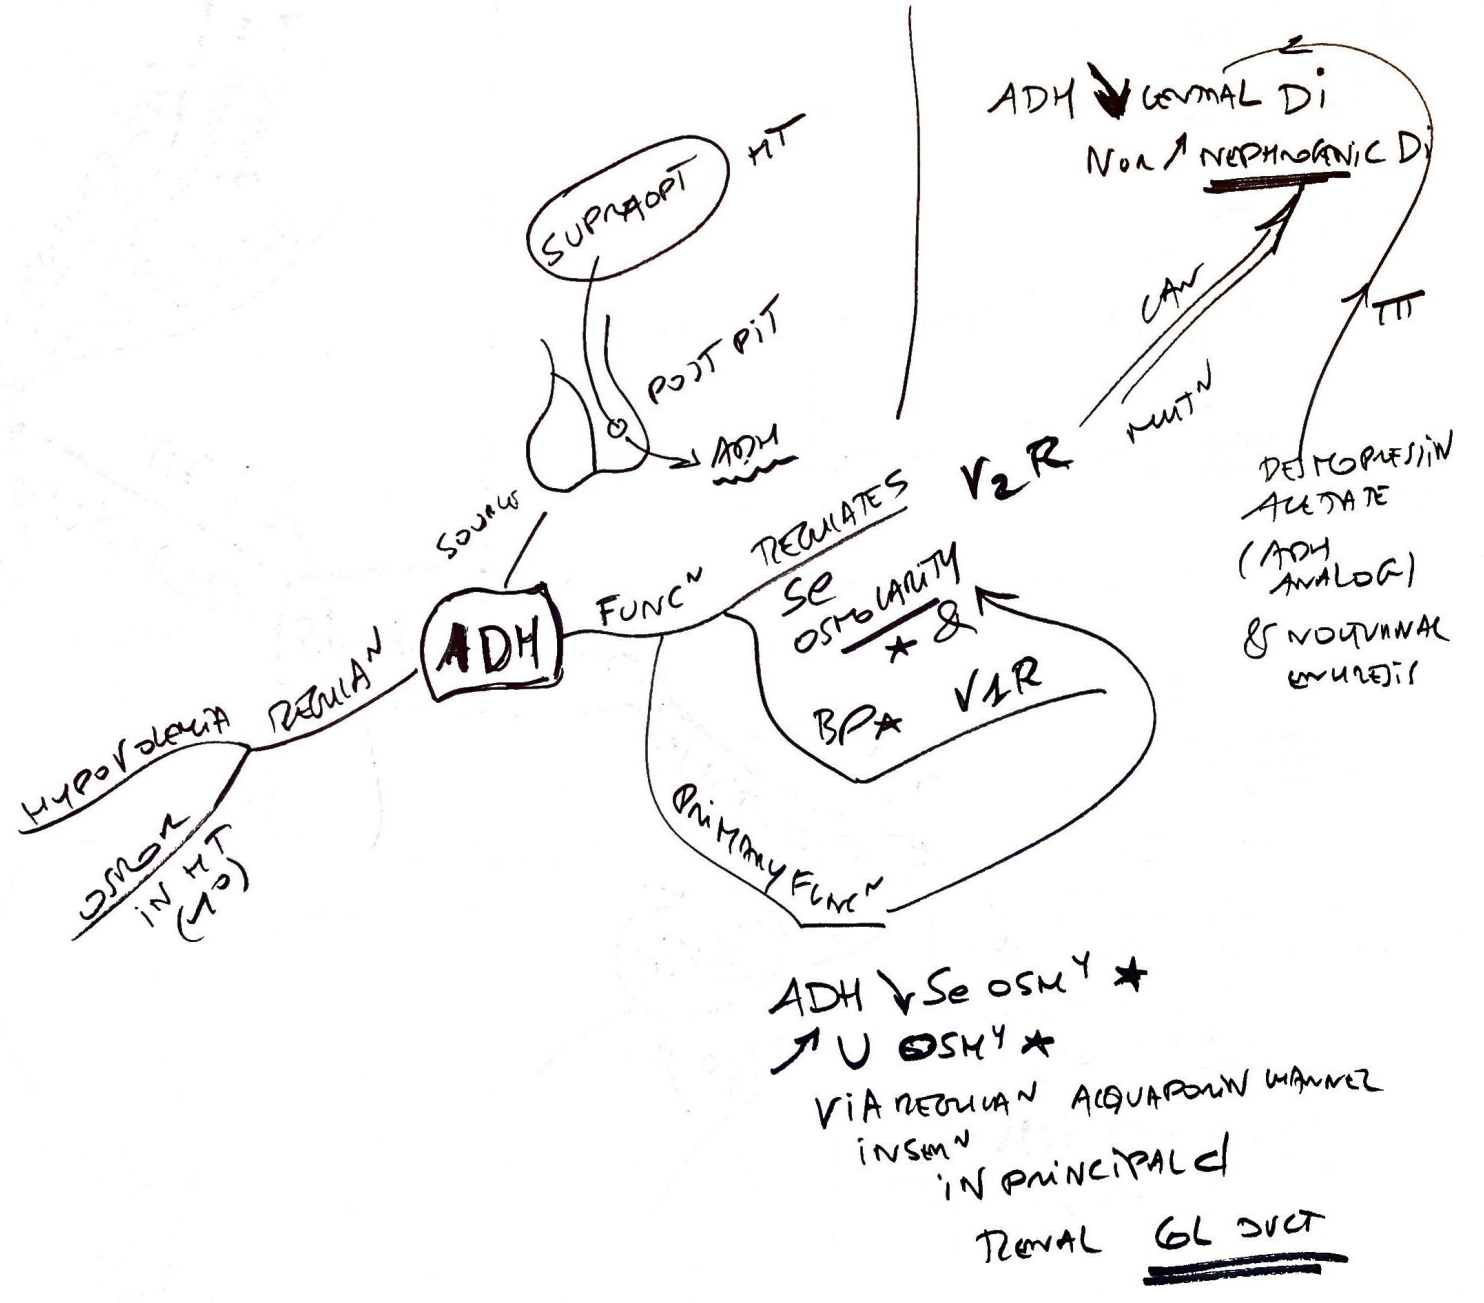 ADH ↓ CENTRAL Di
NOR ↑ NEPHROGENIC Di
HT
SUPRAOPT
POST PIT
ADH
SOURCE
CAN
MUTᴺ
TTT
DESMOPRESSIN
ACETATE
(ADH
ANALOG)
& NOCTURNAL
ENURESIS
V2R
REGULATES
Se
OSMOLARITY
★ &
BP★ V1R
FUNCᴺ
ADH
REGULAᴺ
HYPOVOLEMIA
OSMOR
IN HT
(1°)
PRIMARY FUNCᴺ
ADH ↓ Se OSMʸ ★
↑ U OSMʸ ★
VIA REGULAN ACQUAPORIN CHANNEL
INSERᴺ
IN PRINCIPAL
RENAL COL DUCT